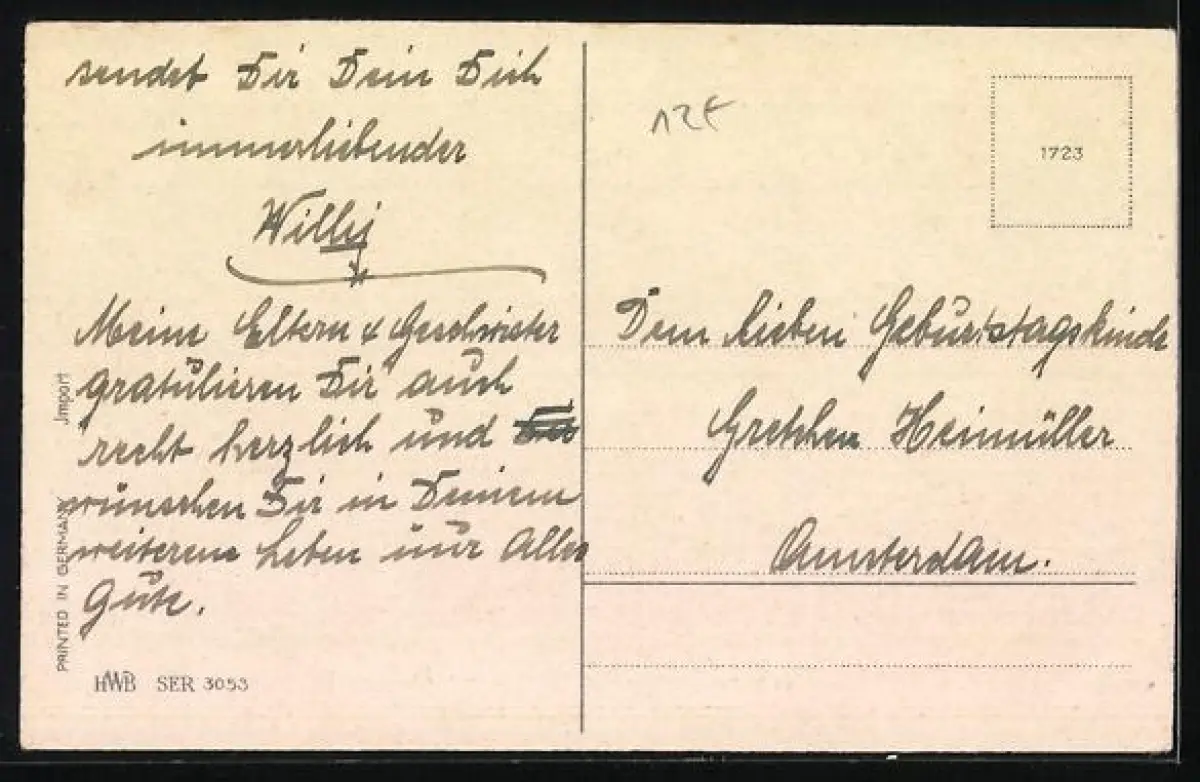 sendet Dir Dein Dich
immerliebender
Willy
Meine Eltern & Geschwister
gratulieren Dir auch
recht herzlich und
wünschen Dir in Deinem
weiterem Leben nur Alles
Gute.
Jmport
PRINTED IN GERMANY
HWB SER 3053
12€
1723
Dem lieben Geburtstagskinde
Gretchen Heimüller
Amsterdam.